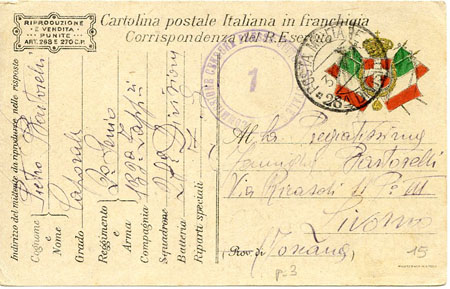 RIPRODUZIONE
E VENDITA
PUNITE
ART. 268 E 270 C.P.
Cartolina postale Italiana in franchigia
Corrispondenza del R. Esercito
POSTA MILITARE
28
1
Indirizzo del mittente da riprodurre nelle risposte
Cognome e Nome Pietro Bartorelli
Grado Caporale
Reggimento e Arma 2o Genio
Compagnia 139a Zapp
Squadrone
Batteria Divisione
Riparti speciali
Alla Pregiatissima
famiglia Bartorelli
Via Ricasoli
Livorno
(Prov. di Toscana)
15
p-3